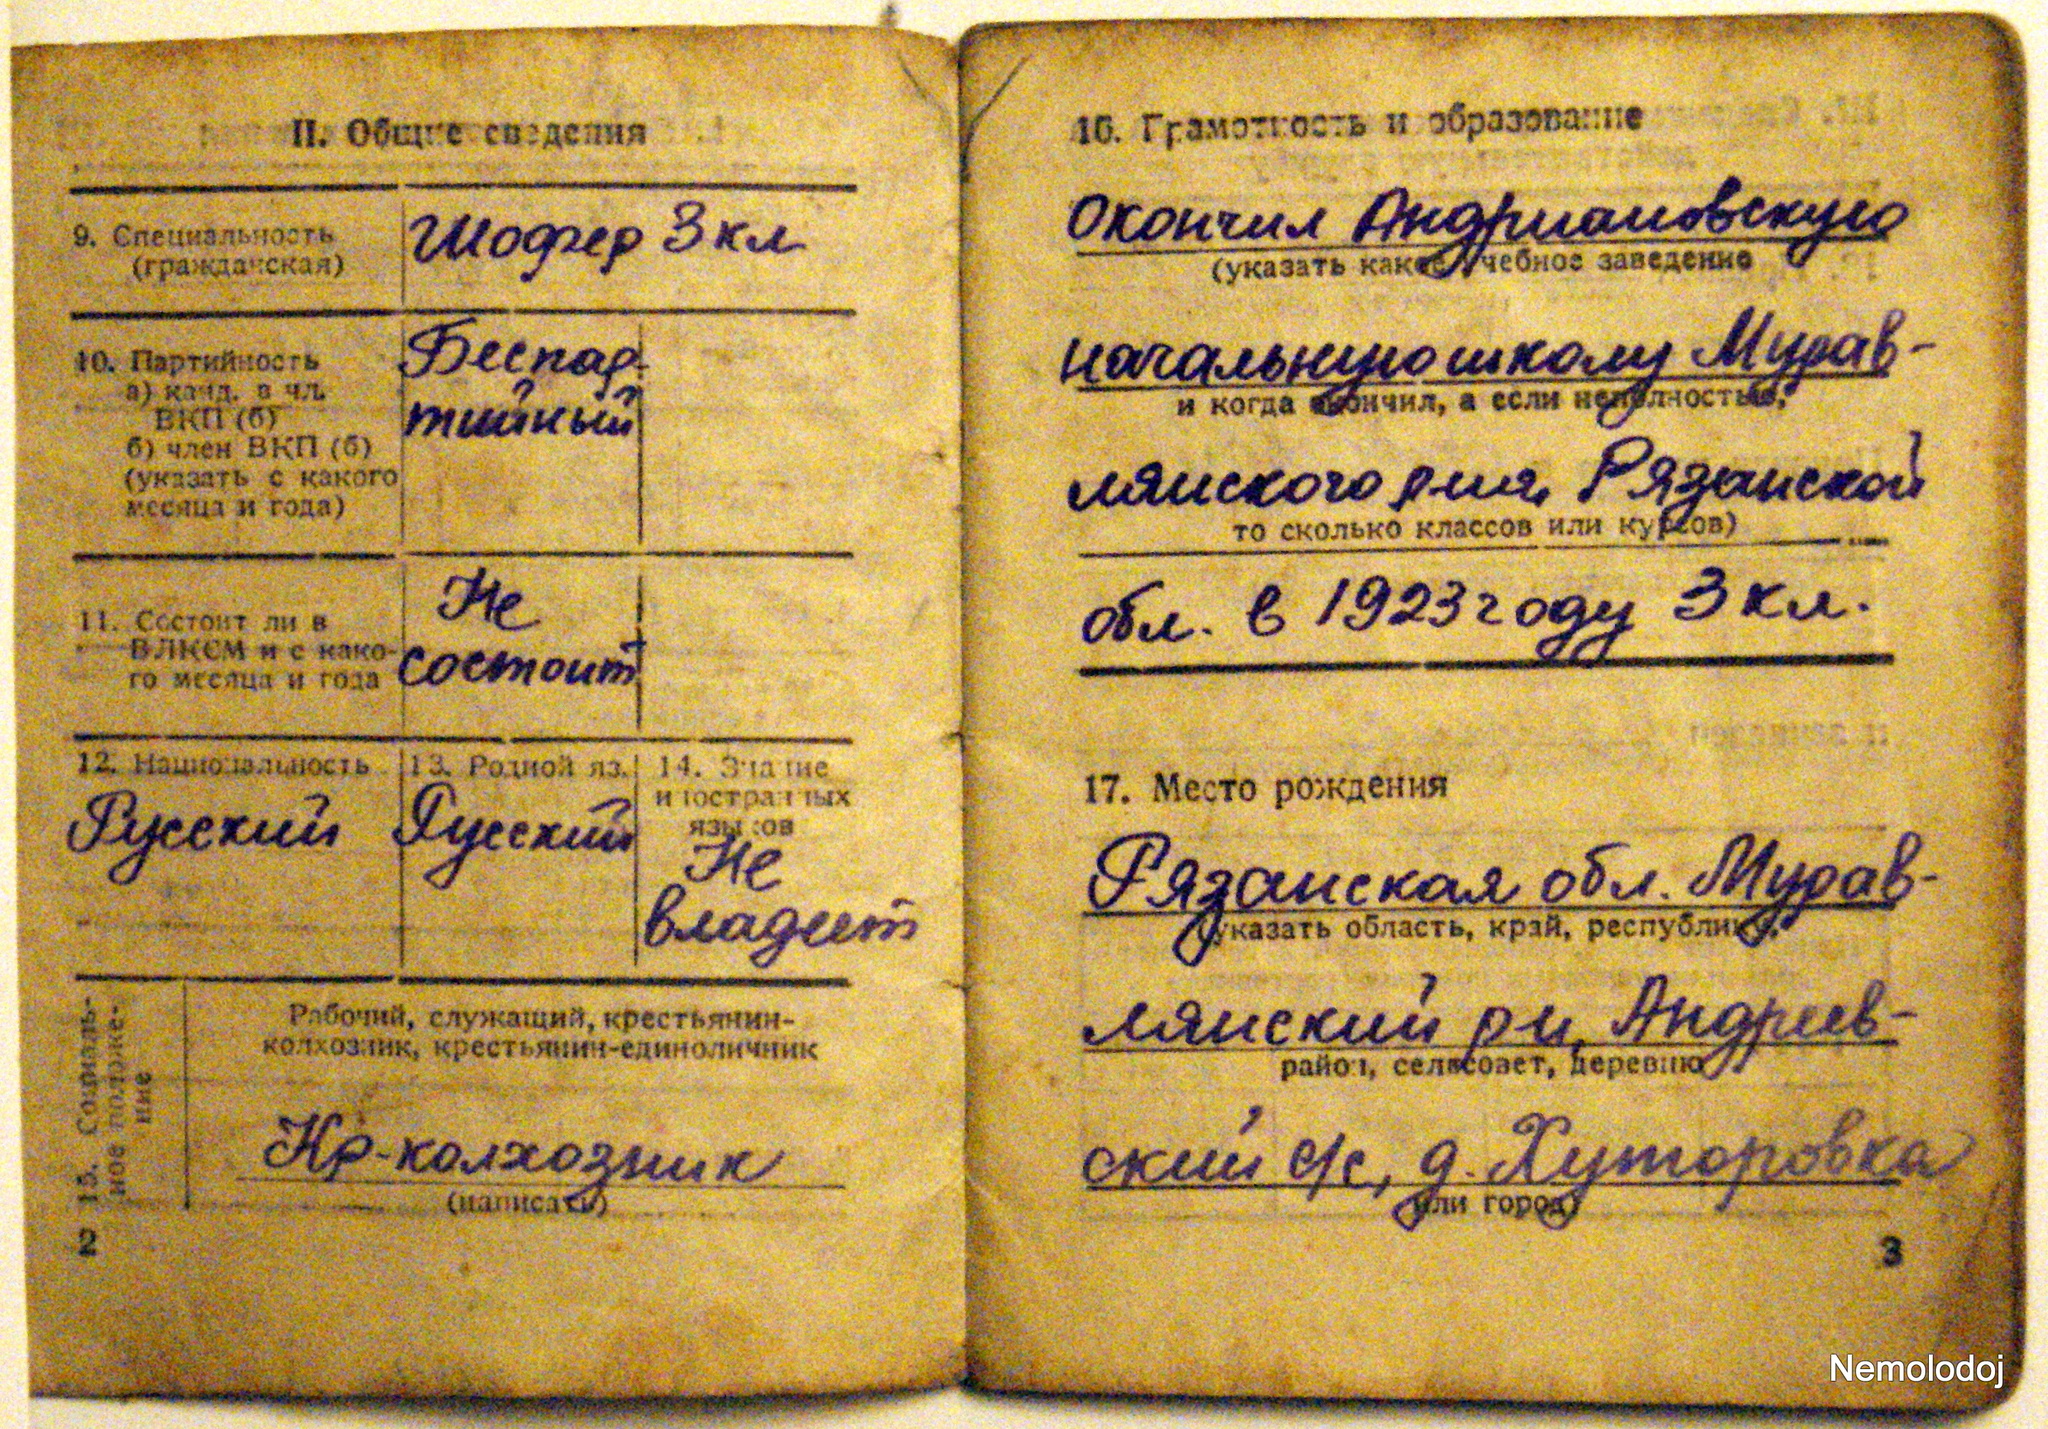 II. Общие сведения
9. Специальность
(гражданская)
Шофер 3 кл
10. Партийность
а) канд. в чл.
ВКП (б)
б) член ВКП (б)
(указать с какого
месяца и года)
Беспар-
тийный
11. Состоит ли в
ВЛКСМ и с како-
го месяца и года
Не
состоит
12. Национальность
Русский
13. Родной яз.
Русский
14. Знание
иностранных
языков
Не
владеет
15. Социаль-
ное положе-
ние
Рабочий, служащий, крестьянин-
колхозник, крестьянин-единоличник
Кр-колхозник
(написать)
2
16. Грамотность и образование
Окончил Андриановскую
(указать какое учебное заведение
начальную школу Мурав-
и когда окончил, а если неполностью,
лянского р-на, Рязанской
то сколько классов или курсов)
обл. в 1923 году 3 кл.
17. Место рождения
Рязанская обл. Мурав-
(указать область, край, республику,
лянский р-н, Андреев-
район, сельсовет, деревню
ский с/с, д. Хуторовка
или город)
3
Nemolodoj